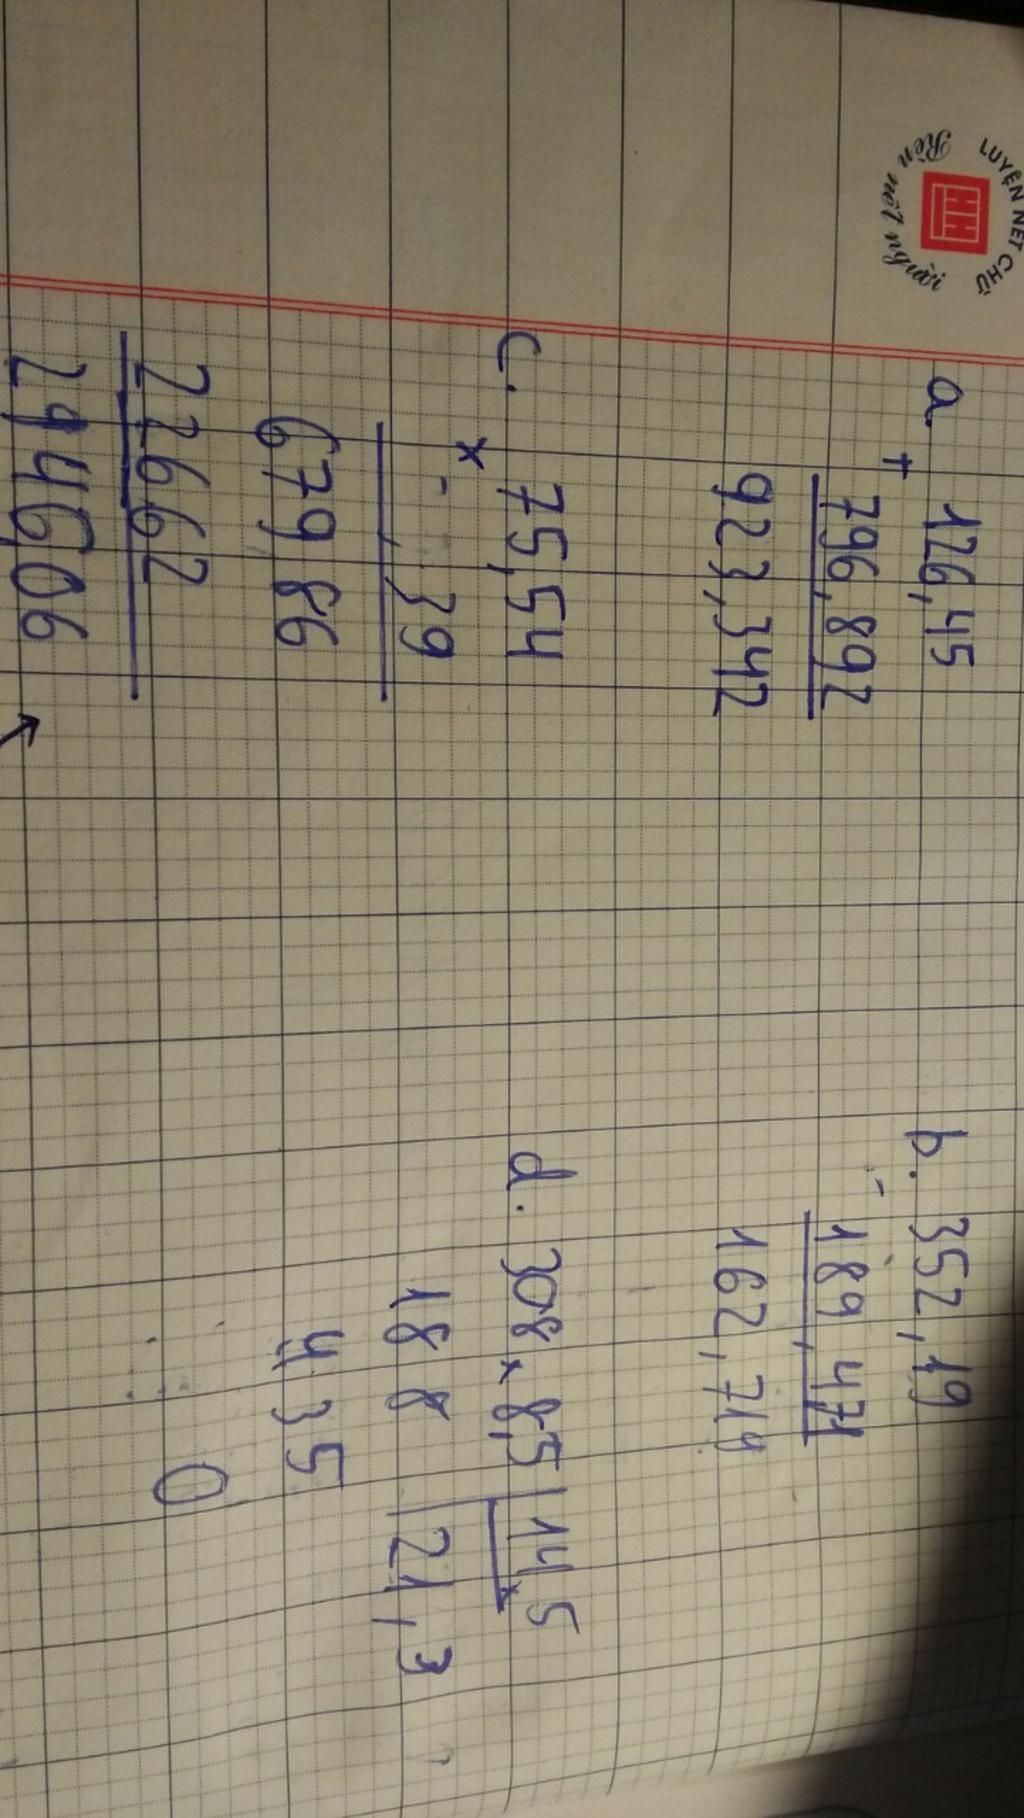 LUYỆN NÉT CHỮ
Rèn nết người
a
126,45
+
796,892
923,342
b.
352,19
-
189,471
162,719
c.
75,54
x
39
67986
22662
294606
d.
308,8,5 | 14,5
188 | 21,3
435
0